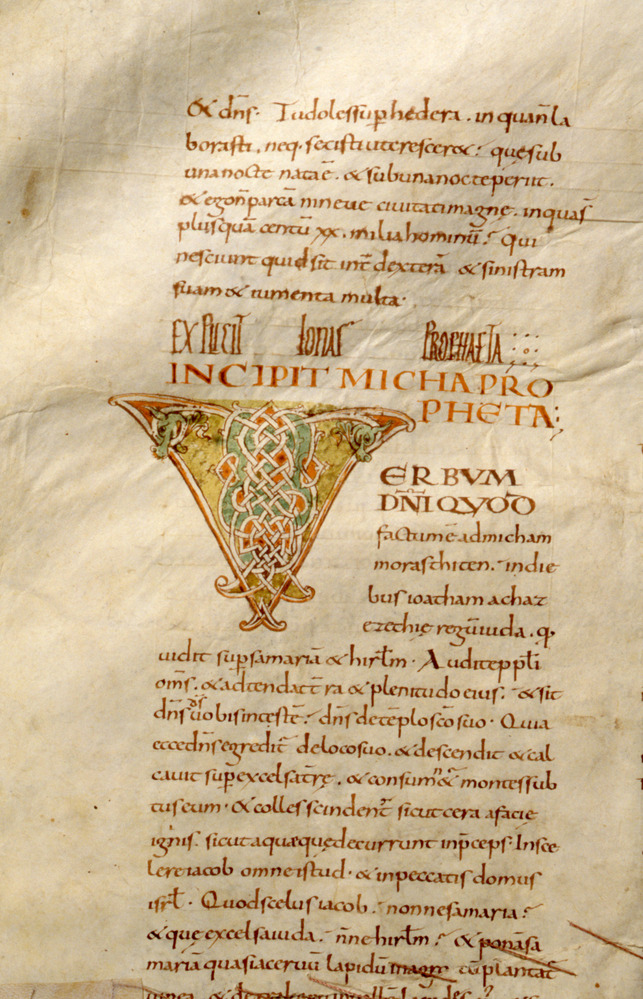 & dn̄s. Tu doles sup̄ hedera. in qua n̄ la
borasti, neq. fecisti ut cresceret? que sub
una nocte nata ē. & sub una nocte periit.
& ego n̄ parcā nineve civitati magnę. in qua s̄
plusquā centū xx. milia hominū? qui
nesciunt quid sit int̄ dexterā & sinistram
suam & iumenta multa.
EXPLICIT IONAS PROPHAETA
INCIPIT MICHA PRO
PHETA:
VERBUM
DN̄I QUOD
factum ē ad micham
morasthiten. in die
bus ioatham achaz
ezechię regū iuda. q,
vidit sup samariā & hirl̄m. Audite pp̄li
om̄s. & adtendat t̄ra & plenitudo eius. & sit
dn̄s d̄s vobis in testē? dn̄s de tēplo sc̄o suo. Quia
ecce dn̄s egredit̄ de loco suo. & descendit & cal
cavit sup excelsa t̄rę. & consum̄& montes sub
tus eum. & colles scindent̄ sicut cera a facie
ignis. sicut aquę quę decurrunt in p̄ceps. In sce
lere iacob omne istud. & in peccatis domus
isrl̄. Quod scelus iacob? nonne samaria?
& quę excelsa iuda? n̄ne hirl̄m? & ponā sa
mariā quasi acervū lapidū cū plantat̄
vinea &